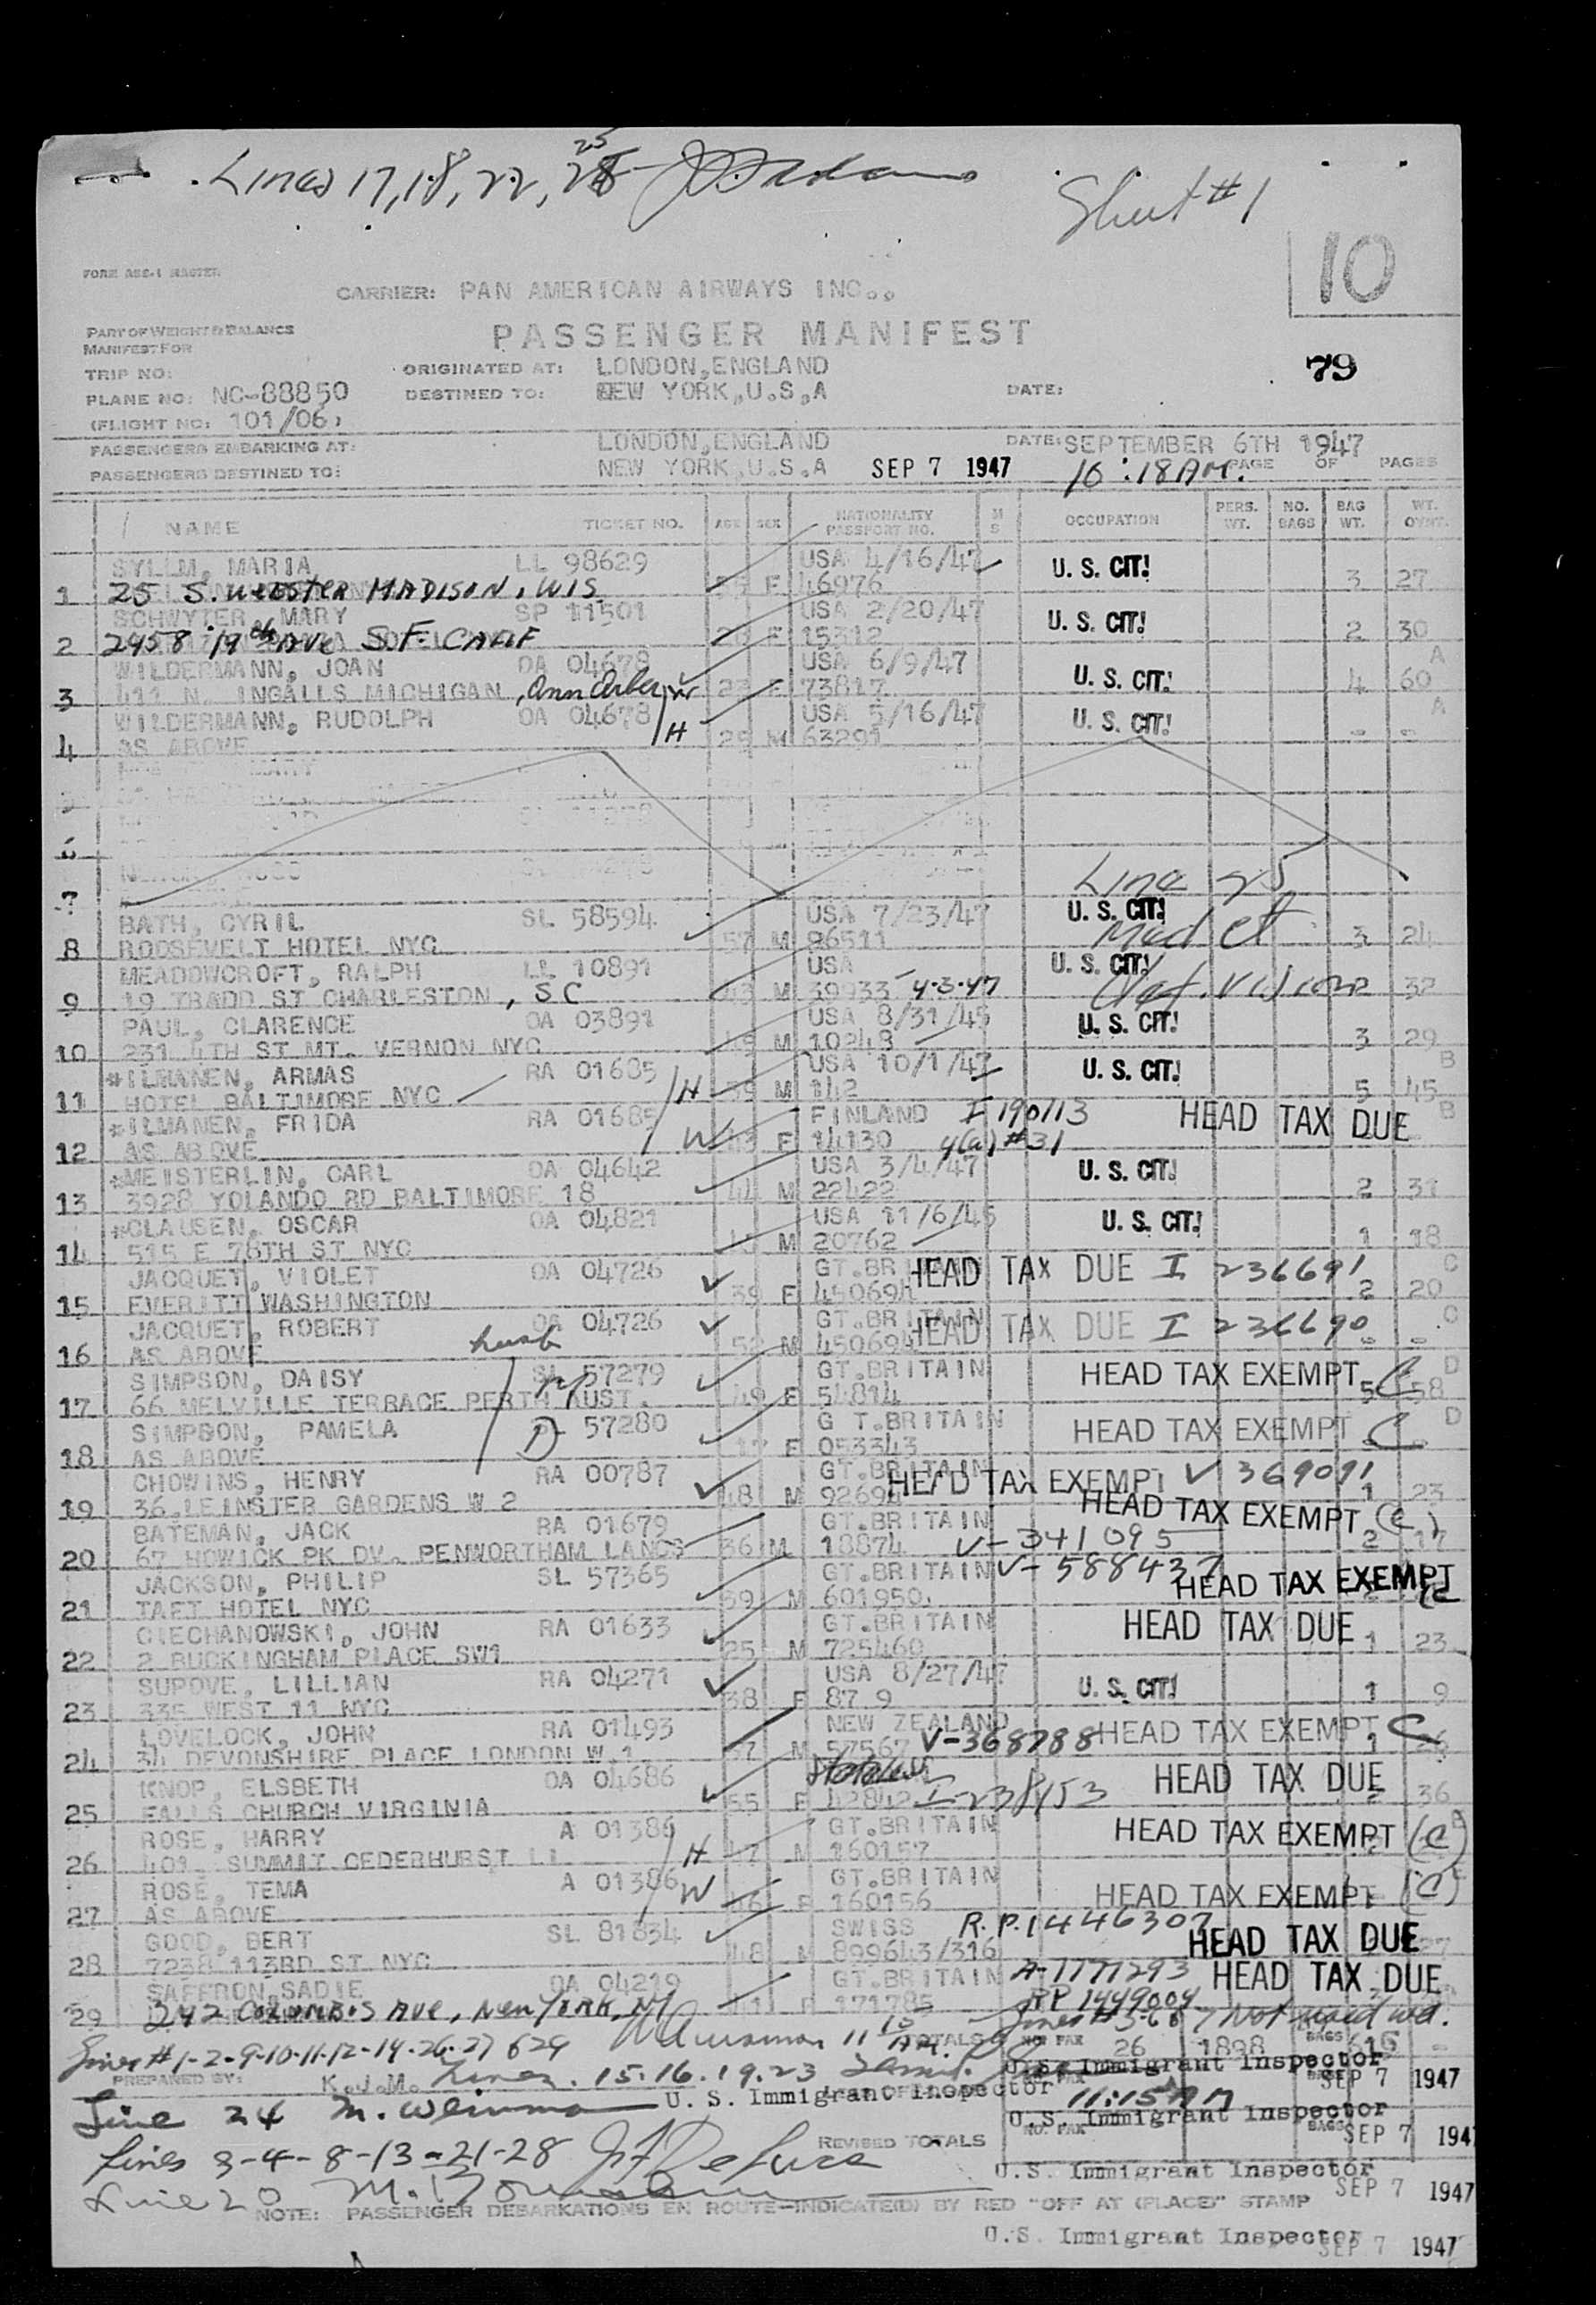 Lines 17, 18, 22, 25
Sheet #1
10
FORM ABS-1 MASTER
CARRIER: PAN AMERICAN AIRWAYS INC.,
PART OF WEIGHT & BALANCE
MANIFEST FOR
PASSENGER MANIFEST
79
TRIP NO:
ORIGINATED AT: LONDON,ENGLAND
PLANE NO: NC-88850
DESTINED TO: NEW YORK,U.S,A
DATE:
(FLIGHT NO: 101/06)
PASSENGERS EMBARKING AT: LONDON,ENGLAND DATE: SEPTEMBER 6TH 1947
PASSENGERS DESTINED TO: NEW YORK,U.S.A SEP 7 1947 10:18 AM. PAGE OF PAGES
NAME TICKET NO. AGE SEX NATIONALITY PASSPORT NO. M S OCCUPATION PERS. WT. NO. BAGS BAG WT. WT. OVNT.
SYLLM, MARIA LL 98629 USA 4/16/47 U. S. CIT!
1 25 S. WEBSTER MADISON, WIS F 46976 3 27
SCHWYTER, MARY SP 11501 USA 2/20/47 U. S. CIT!
2 2958 19th AVE S.F. CALIF F 15312 2 30
WILDERMANN, JOAN OA 04678 USA 6/9/47 U. S. CIT! A
3 411 N. INGALLS MICHIGAN, Ann Arbor W F 73817 4 60
WILDERMANN, RUDOLPH OA 04678 USA 5/16/47 U. S. CIT! A
4 AS ABOVE H 29 M 63291 - -
5
6
7
Line 25
BATH, CYRIL SL 58594 USA 7/23/47 U. S. CIT!
8 ROOSEVELT HOTEL NYC 57 M 96511 Med Ct 3 24
MEADOWCROFT, RALPH LL 10891 USA U. S. CIT!
9 19 TRADD ST CHARLESTON, SC 43 M 39933 4-3-47 Def. Vision 2 32
PAUL, CLARENCE OA 03891 USA 8/31/45 U. S. CIT!
10 231 4TH ST MT. VERNON NYC M 10248 3 29
*ILMANEN, ARMAS RA 01685 USA 10/1/47 U. S. CIT! B
11 HOTEL BALTIMORE NYC H 39 M 142 5 45
*ILMANEN, FRIDA RA 01685 FINLAND I 190113 HEAD TAX DUE B
12 AS ABOVE W F 14130 4(a) #31
*MEISTERLIN, CARL OA 04642 USA 3/4/47 U. S. CIT!
13 3928 YOLANDO RD BALTIMORE 18 44 M 22422 2 31
*CLAUSEN, OSCAR OA 04821 USA 11/6/45 U. S. CIT!
14 515 E 78TH ST NYC M 20762 1 18
JACQUET, VIOLET OA 04726 GT.BRITAIN HEAD TAX DUE I 236691 C
15 EVERITT WASHINGTON 39 F 450694 2 20
JACQUET, ROBERT OA 04726 GT.BRITAIN HEAD TAX DUE I 236690 C
16 AS ABOVE husb 52 M 450694 - -
SIMPSON, DAISY SL 57279 GT.BRITAIN HEAD TAX EXEMPT C D
17 66 MELVILLE TERRACE PERTH AUST. 49 F 54814 5 58
SIMPSON, PAMELA D 57280 G T.BRITAIN HEAD TAX EXEMPT C D
18 AS ABOVE 17 F 053343 -
CHOWINS, HENRY RA 00787 GT.BRITAIN HEAD TAX EXEMPT V 369091
19 36,LEINSTER GARDENS W 2 48 M 92694 1 23
BATEMAN, JACK RA 01679 GT.BRITAIN HEAD TAX EXEMPT (C)
20 67 HOWICK PK DV. PENWORTHAM LANCS 36 M 18874 V-341095 2 17
JACKSON, PHILIP SL 57365 GT.BRITAIN V-588437 HEAD TAX EXEMPT
21 TAFT HOTEL NYC 59 M 601950.
CIECHANOWSKI, JOHN RA 01633 GT.BRITAIN HEAD TAX DUE
22 2 BUCKINGHAM PLACE SW1 25 M 725460 1 23
SUPOVE, LILLIAN RA 04271 USA 8/27/47 U. S. CIT!
23 335 WEST 11 NYC 38 F 87 9 1 9
LOVELOCK, JOHN RA 01493 NEW ZEALAND HEAD TAX EXEMPT C
24 34 DEVONSHIRE PLACE LONDON W.1 37 M 57567 V-368788 1
KNOP, ELSBETH OA 04686 Stateless HEAD TAX DUE
25 FALLS CHURCH VIRGINIA 55 F 42842 I-238153 2 36
ROSE, HARRY A 01386 GT.BRITAIN HEAD TAX EXEMPT (C)
26 401 SUMMIT CEDERHURST LI H 47 M 160157
ROSE, TEMA A 01386 GT.BRITAIN HEAD TAX EXEMPT (C)
27 AS ABOVE W F 160156
GOOD, BERT SL 81834 SWISS R.P. 1446307 HEAD TAX DUE
28 7238 113RD ST NYC 48 M 899643/316
SAFFRON,SADIE OA 04219 GT.BRITAIN A-7777293 HEAD TAX DUE
29 242 COLUMBUS AVE, NEW YORK, NY F 171785 RP 1449004
Lines # 5-6 & 7 Not used
Lines # 1-2-9-10-11-12-14-26-27 & 29 11 15 AM. TOTALS NO. PAX 26 1898 BAGS 615
PREPARED BY: K.J.M. Lines. 15.16.19.23 U.S. Immigrant Inspector SEP 7 1947
Line 24 M. Weinman U. S. Immigrant Inspector 11:15 AM
U.S. Immigrant Inspector
Lines 3-4-8-13-21-28 REVISED TOTALS NO. PAX BAGS SEP 7 1947
U.S. Immigrant Inspector
Line 20 SEP 7 1947
NOTE: PASSENGER DEBARKATIONS EN ROUTE—INDICATE(D) BY RED "OFF AT (PLACE)" STAMP
U.S. Immigrant Inspector SEP 7 1947